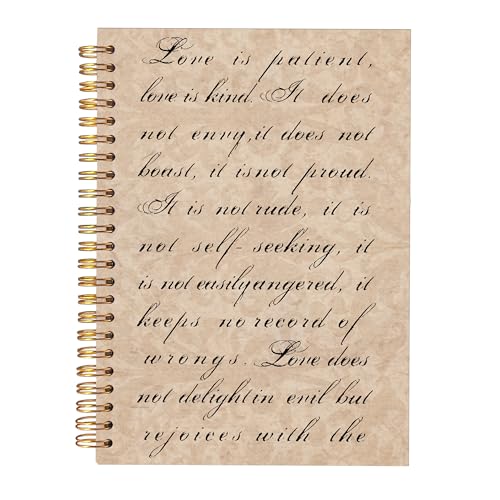 Love is patient,
love is kind. It does
not envy, it does not
boast, it is not proud.
It is not rude, it is
not self-seeking, it
is not easily angered, it
keeps no record of
wrongs. Love does
not delight in evil but
rejoices with the